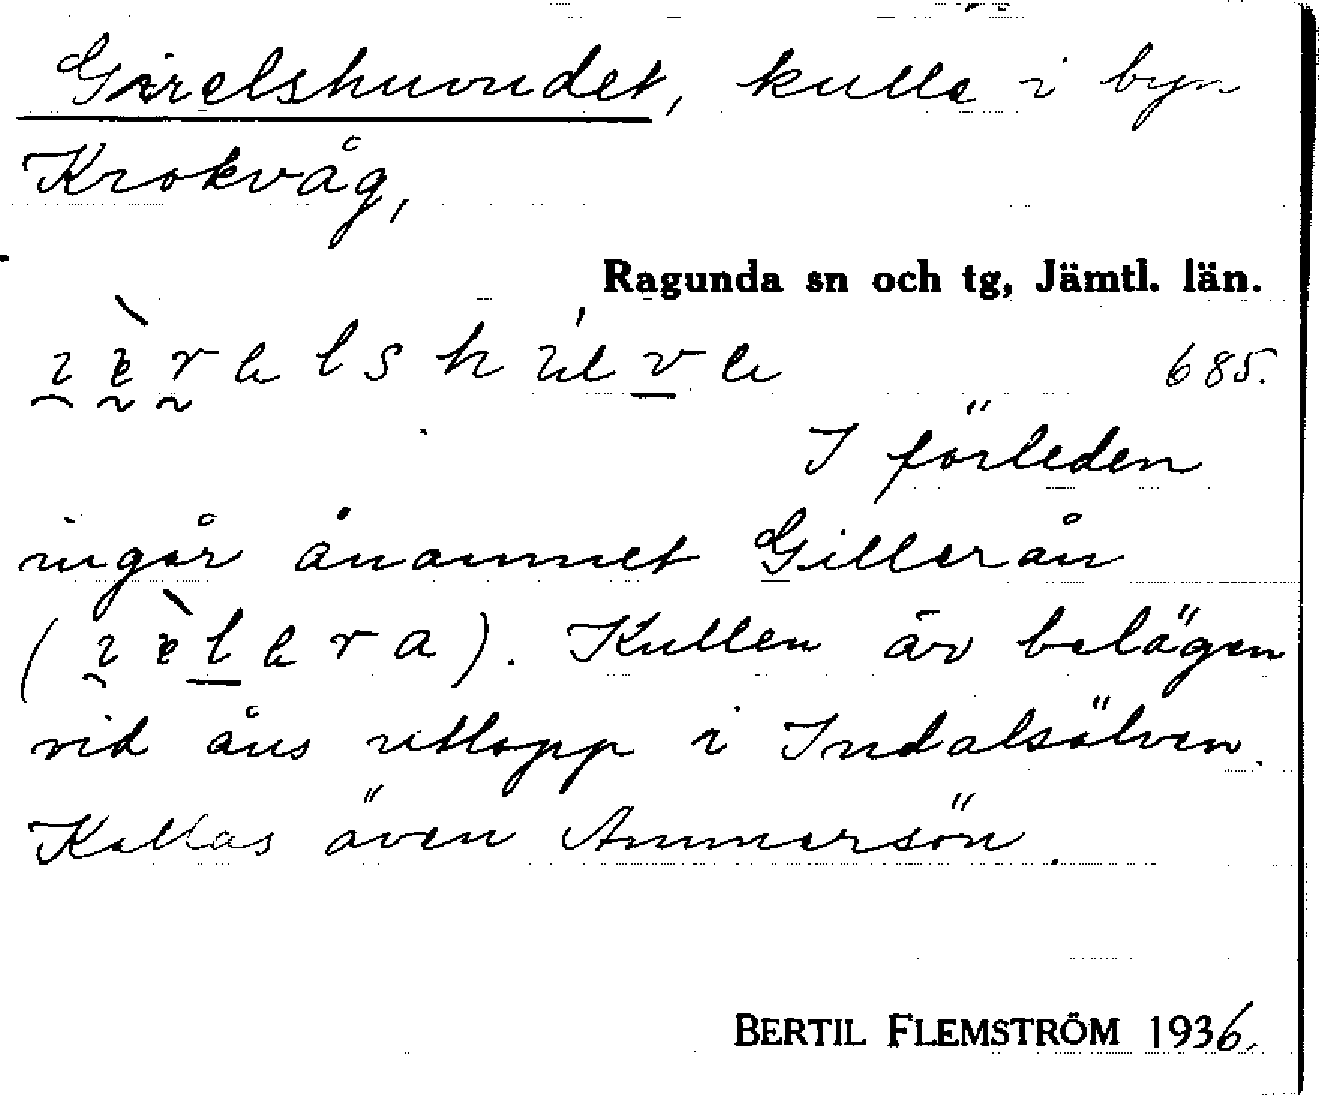 Girelshuvudet, kulle i byn
Krokvåg,
Ragunda sn och tg, Jämtl. län.
685.
I förleden
ingår ånamnet Gillerån
Kullen är belägen
vid åns utlopp i Indalsälven.
Kallas även Ammersön.
BERTIL FLEMSTRÖM 1936.